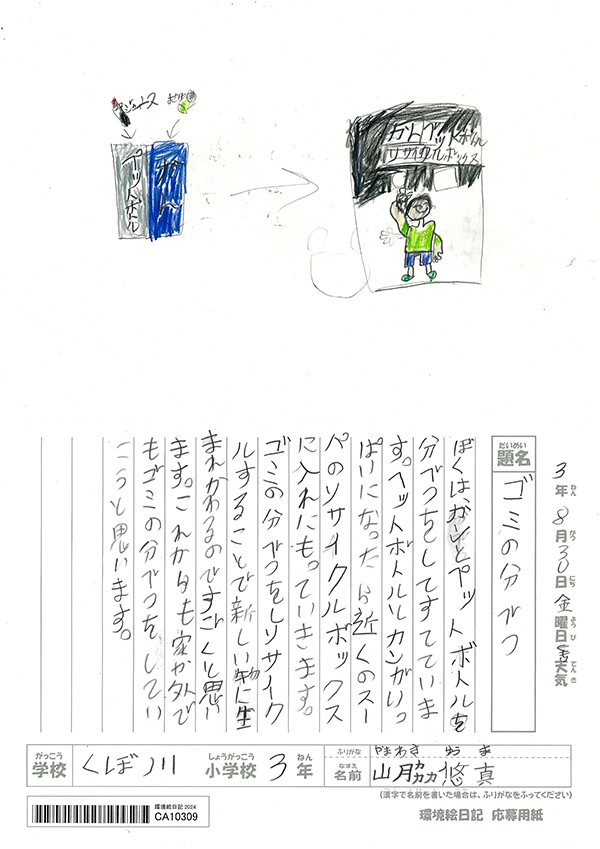 ジュース
ペットボトル
かん
かんペットボトル
リサイクルボックス
3年8月30日金曜日天気
ねん がつ にち ようび てんき
だいめい
題名
ゴミの分べつ
ぼくは、カンとペットボトルを
分べつをしてすてていま
す。ペットボトルリカンがいっ
ぱいになったら近くのスー
パのリサイクルボックス
に入れにもっていきます。
ゴミの分べつをしリサイク
ルすることで新しい物に生
まれかわるのですごくと思い
ます。これからも家か外で
もゴミの分べつをしてい
こうと思います。
がっこう
学校
くぼ川
しょうがっこう
小学校
3
ねん
年
ふりがな
やまわき ゆうま
なまえ
名前
山脇悠真
(漢字で名前を書いた場合は、ふりがなをふってください)
環境絵日記2024
CA10309
環境絵日記 応募用紙